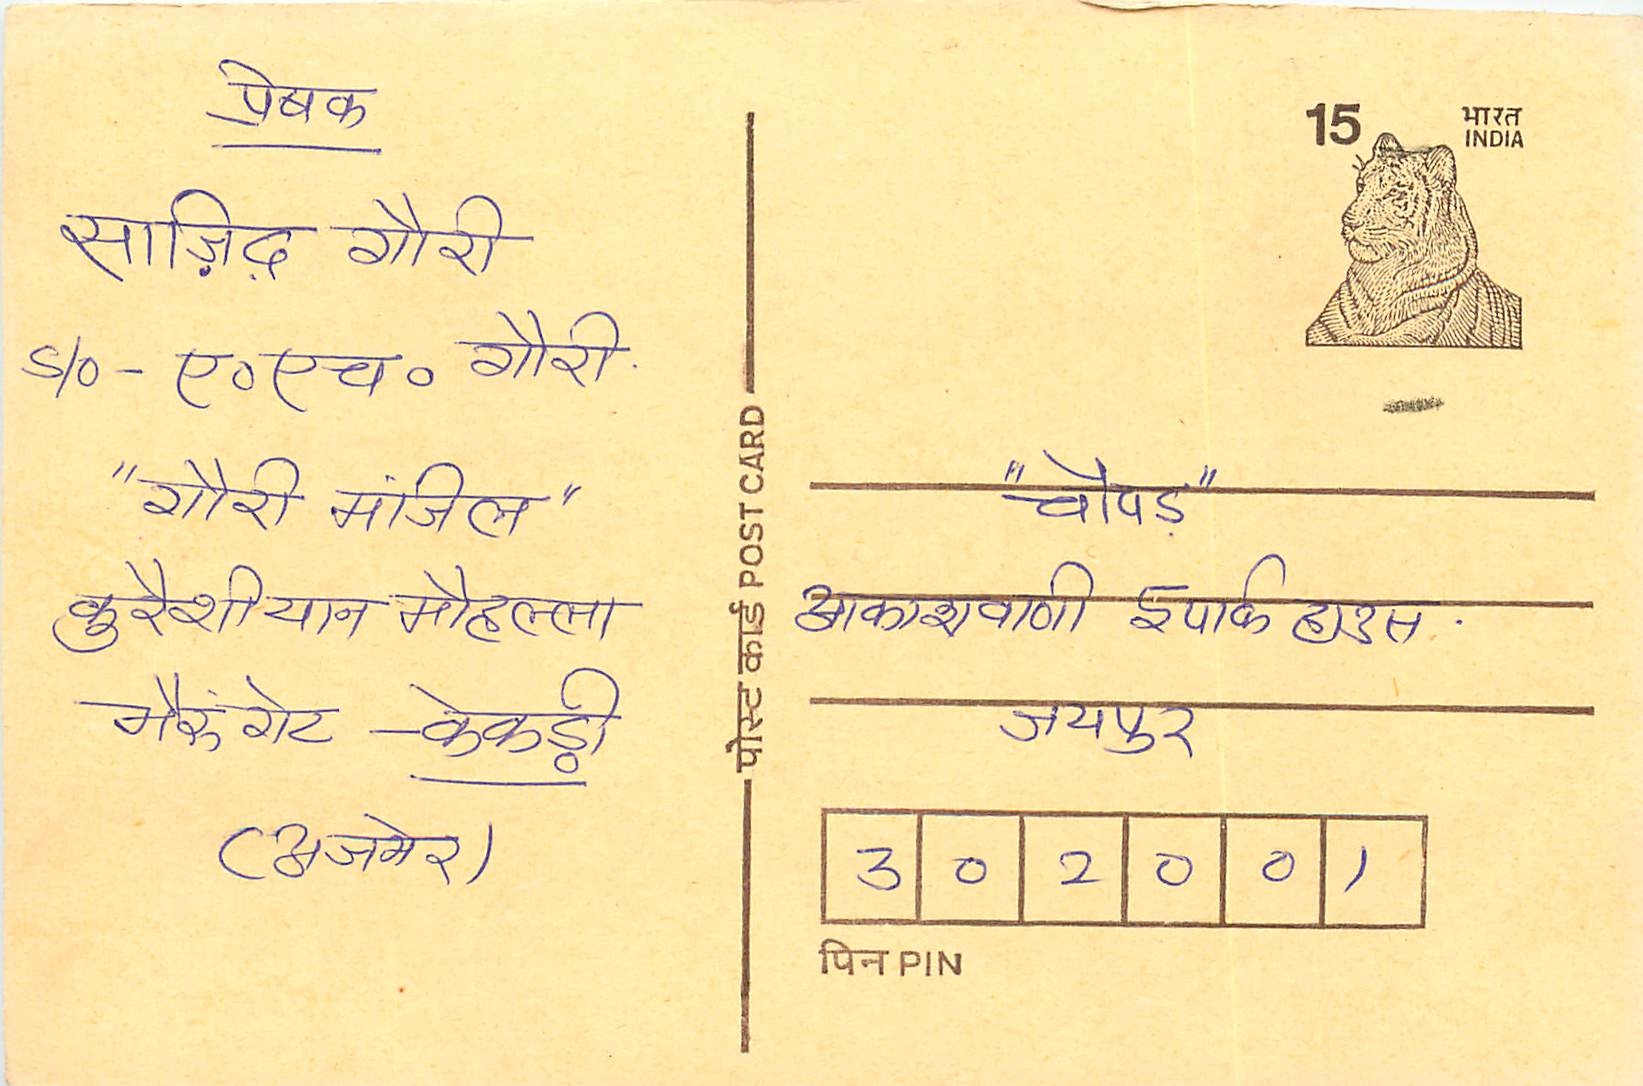 प्रेषक
साज़िद़ गौरी
S/o - ए०एच० गौरी.
"गौरी मंजिल"
कुरैशीयान मौहल्ला
भैरूं गेट - केकड़ी
(अजमेर)
पोस्ट कार्ड POST CARD
15 भारत
INDIA
"चौपड़"
आकाशवाणी ईपार्क हाउस.
जयपुर
302001
पिन PIN